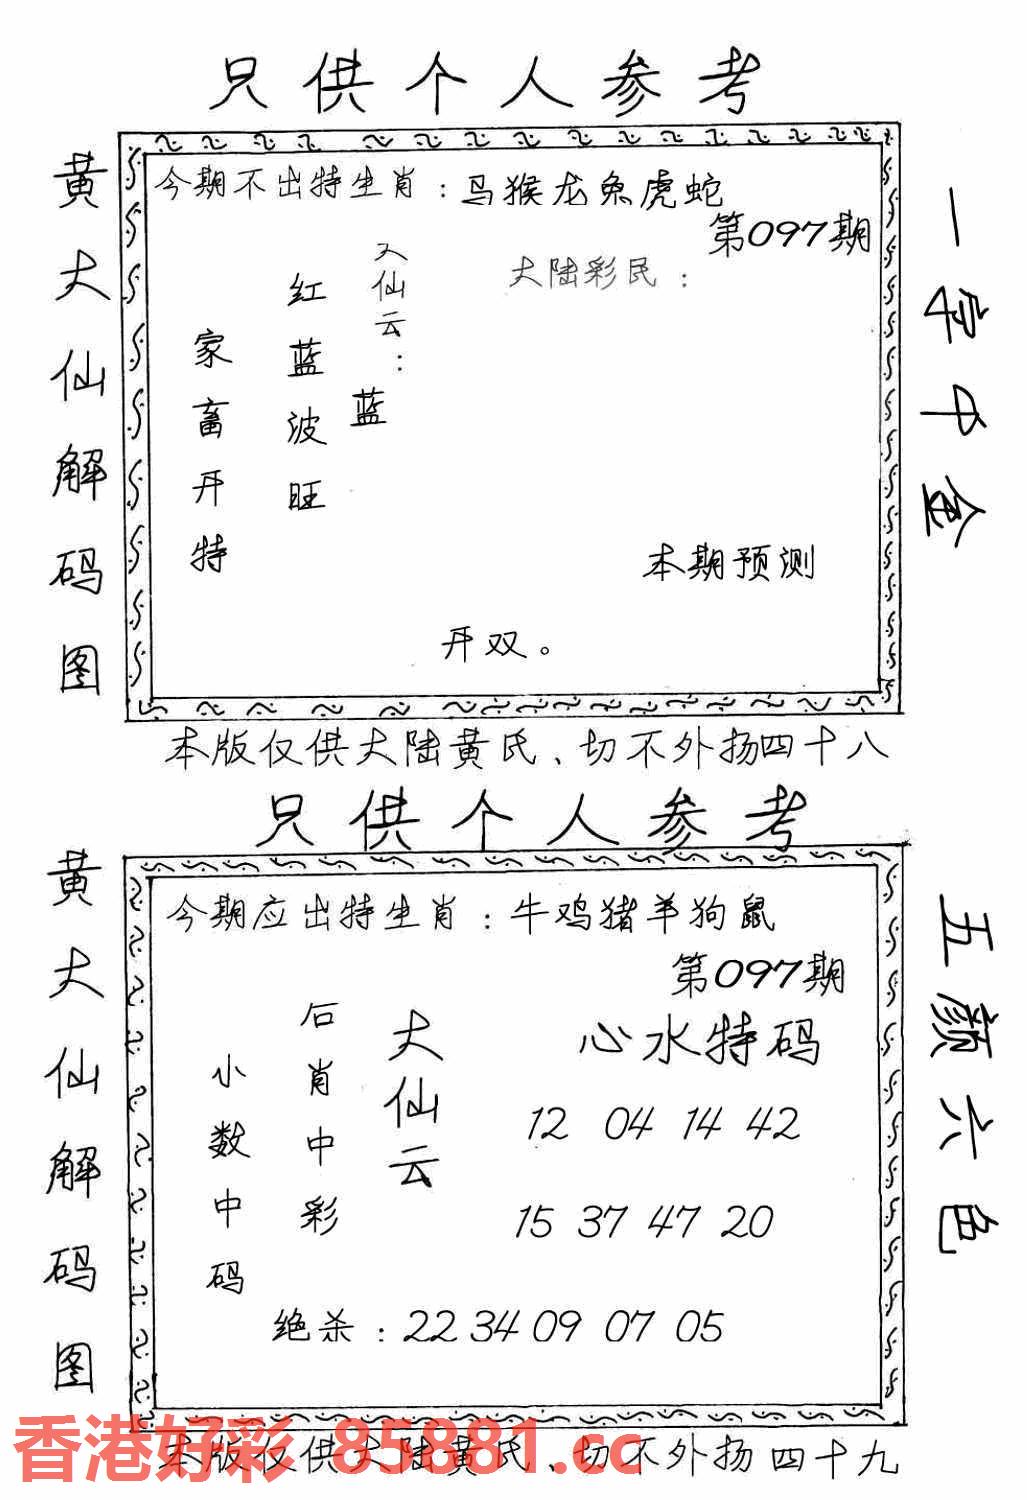 只供个人参考
黄大仙解码图
今期不出特生肖：马猴龙兔虎蛇
第097期
大陆彩民：
大仙云：
蓝
红蓝波旺
家畜开特
本期预测
开双。
一字中金
本版仅供大陆黄氏、切不外扬四十八
只供个人参考
黄大仙解码图
今期应出特生肖：牛鸡猪羊狗鼠
第097期
心水特码
大仙云
后肖中彩
小数中码
12 04 14 42
15 37 47 20
绝杀：22 34 09 07 05
五颜六色
本版仅供大陆黄氏、切不外扬四十九
香港好彩 85881.cc